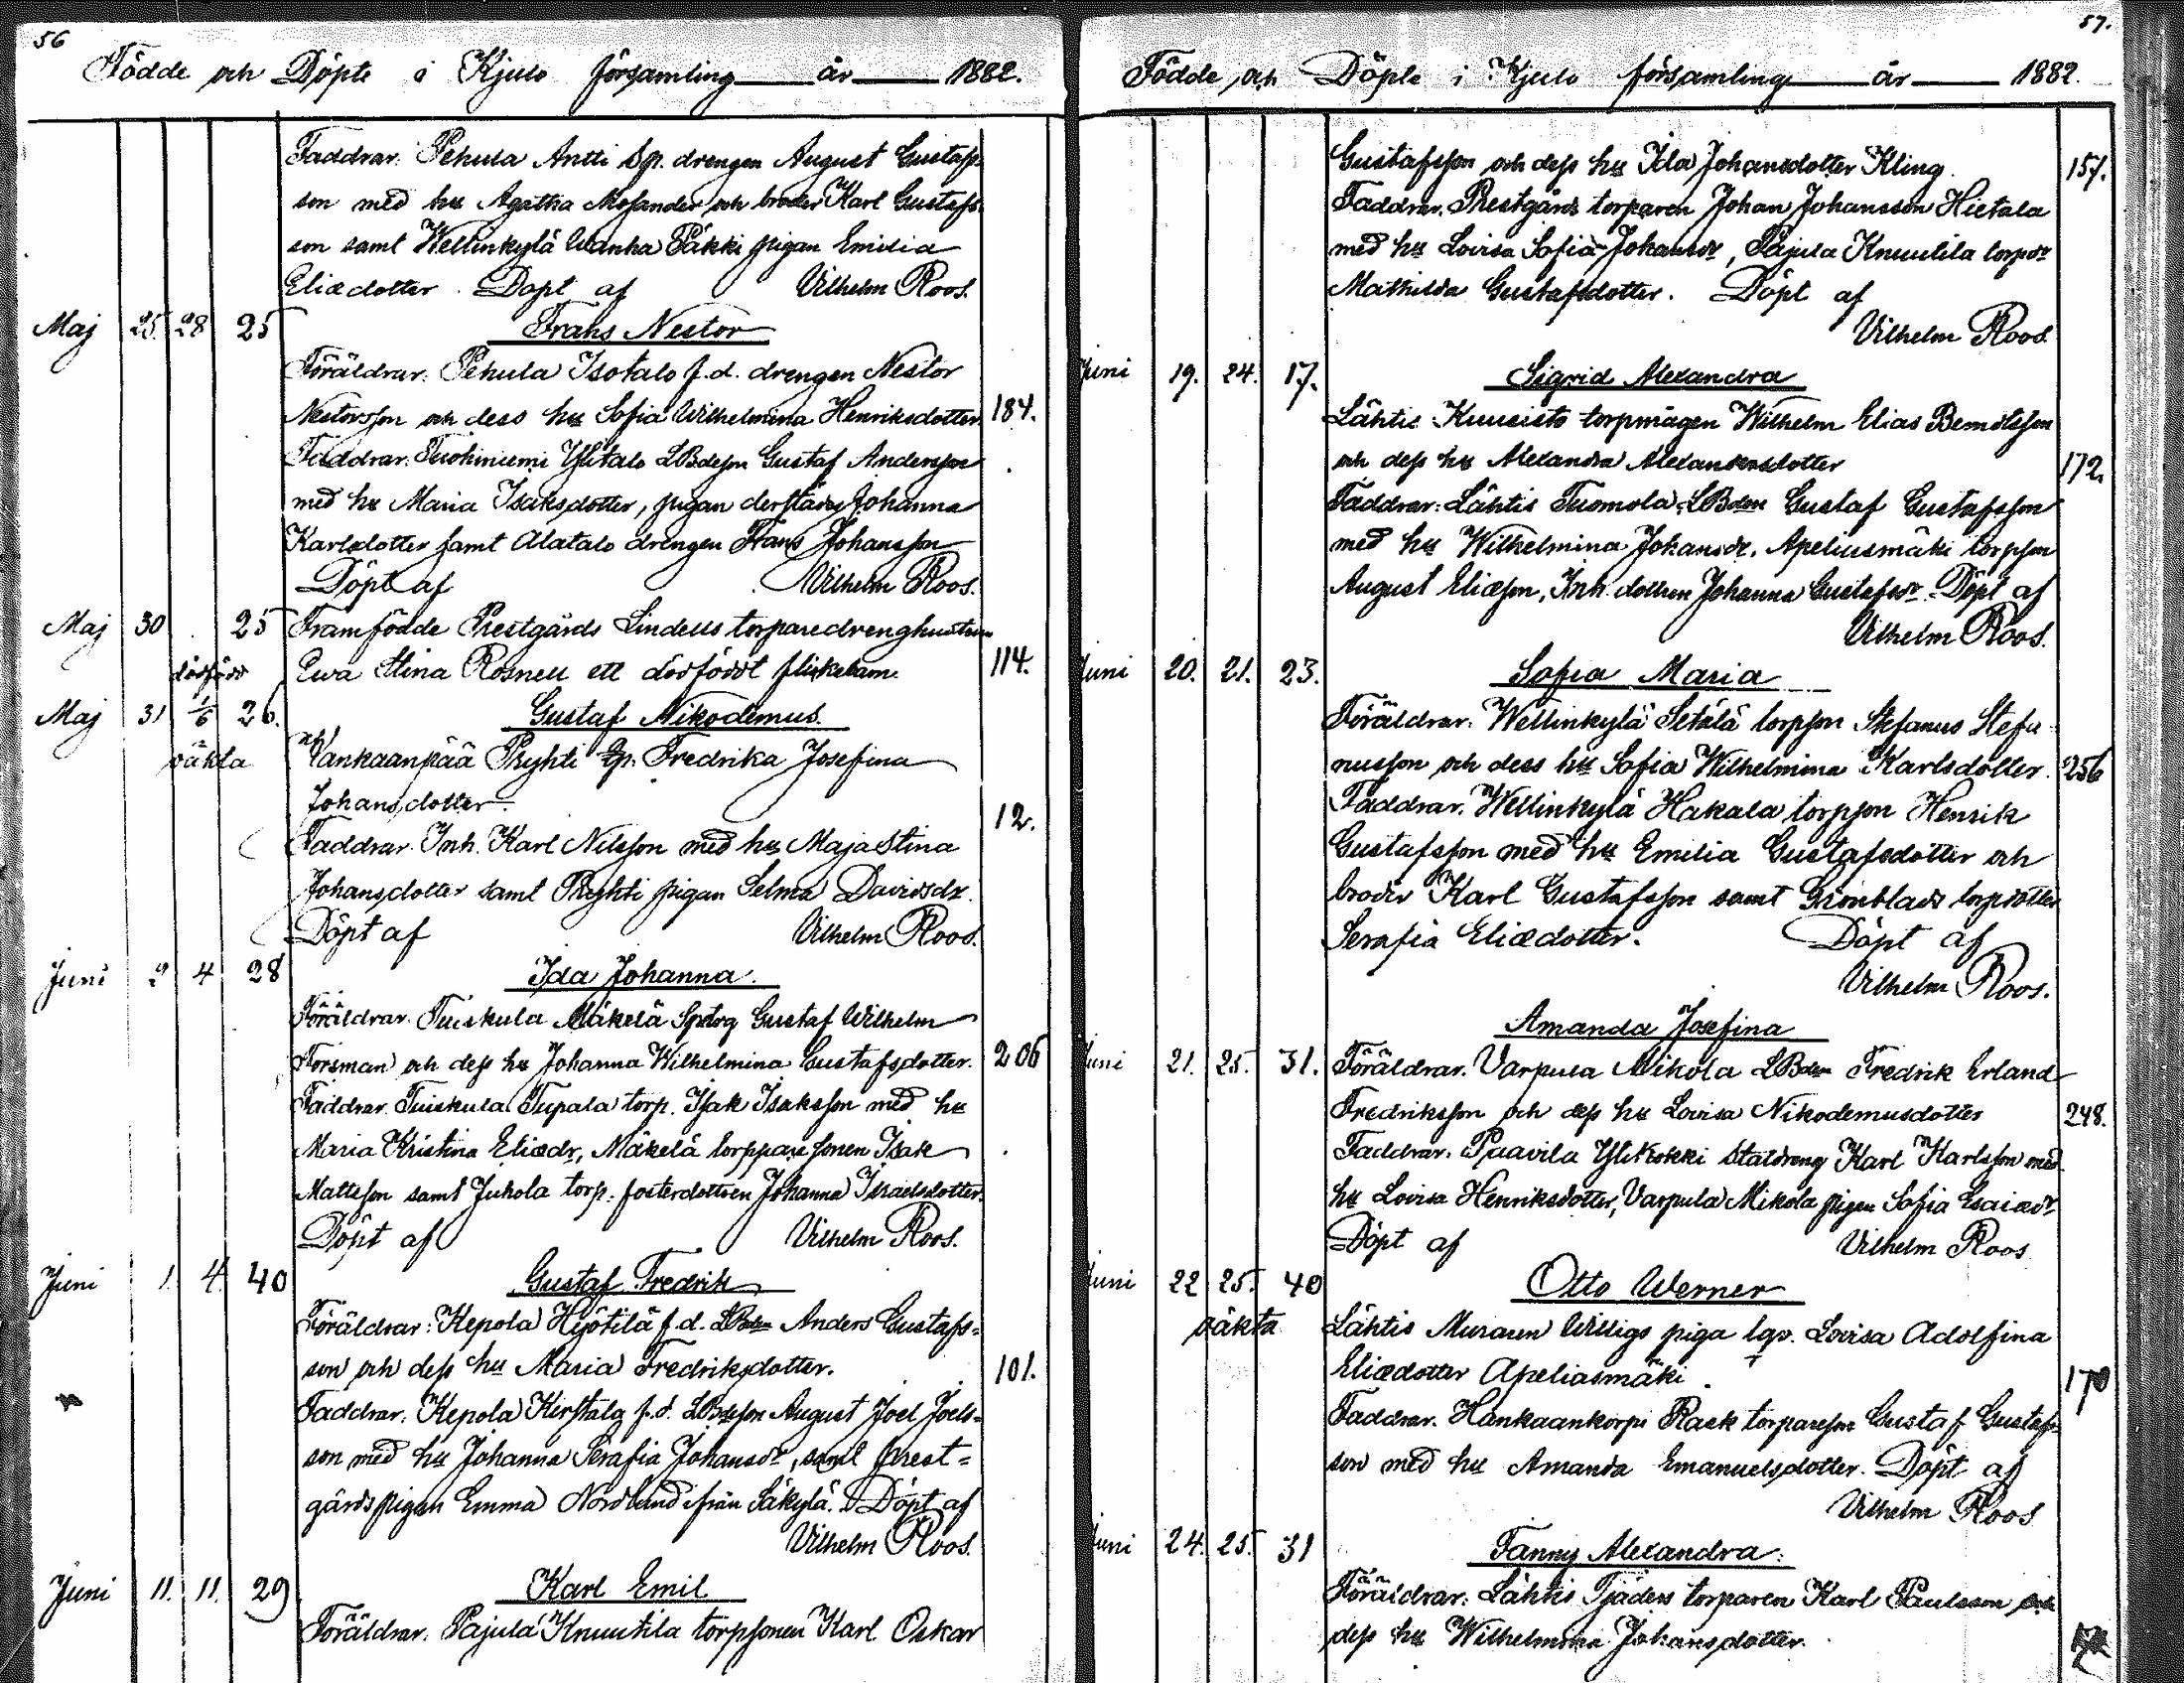 56
Födde och Döpte i Kjulo församling år 1882.
Faddrar. Pehula Antti Sp. drengen August Gustafs-
son med hu Agatha Mosander och broder Karl Gustafs-
son samt Wellinkylä Wanha Päkki pigan Emilia
Eliædotter. Döpt af Vilhelm Roos.
Maj 25. 28 25 Frans Nestor
Föräldrar. Pehula Isotalo f.d. drengen Nestor
Nestorsson och dess hu Sofia Wilhelmina Henriksdotter. 184.
Faddrar. Tuohiniemi Ylitalo LBdeson Gustaf Andersson
med hu Maria Isaksdotter, pigan derstädes Johanna
Karlsdotter samt Alatalo drengen Frans Johansson
Döpt af Vilhelm Roos.
Maj 30 25 Framfödde Prestgårds Lindells torparedrenghustrun
dödfödd Ewa Stina Rosnell ett dödfödt flickebarn. 114.
Maj 31 1/6 26. Gustaf Nikodemus.
oäkta Vankaanpää Pryhti Fredrika Josefina
Johansdotter. 12.
Faddrar. Inh. Karl Nilsson med hu Maja Stina
Johansdotter samt Pryhti pigan Selma Davidsdr.
Döpt af Vilhelm Roos.
Juni 2 4 28 Ida Johanna.
Föräldrar. Tuiskula Mäkelä Gustaf Wilhelm
Forsman och dess hu Johanna Wilhelmina Gustafsdotter. 206
Faddrar. Tuiskula Tupala torp. Isak Isaksson med hu
Maria Kristina Eliædr, Mäkelä torppare sonen Isak
Mattsson samt Jukola torp. fosterdottren Johanna Israelsdotter.
Döpt af Vilhelm Roos.
Juni 1. 4. 40 Gustaf Fredrik
Föräldrar: Kepola Hyötilä f.d. LBden Anders Gustafs-
son och dess hu Maria Fredriksdotter. 101.
Faddrar. Kepola Kirstalg f.d. LBdeson August Joel Joels-
son med hu Johanna Serafia Johansdr, samt prest-
gårdspigan Emma Nordlund från Säkylä. Döpt af
Vilhelm Roos.
Juni 11. 11. 29 Karl Emil
Föräldrar. Pajula Knuutila torpsonen Karl Oskar
57.
Födde och Döpte i Kjulo församling år 1882.
Gustafsson och dess hu Ida Johansdotter Kling. 157.
Faddrar. Prestgårds torparen Johan Johansson Hietala
med hu Lovisa Sofia Johansdr, Pajula Knuutila torpdr
Mathilda Gustafsdotter. Döpt af
Vilhelm Roos.
Juni 19. 24. 17. Sigrid Alexandra
Lähtis Kuusisto torpmågen Wilhelm Elias Berndtsson
och dess hu Alexandra Alexandersdotter 172.
Faddrar: Lähtis Tuomola LBden Gustaf Gustafsson
med hu Wilhelmina Johansdr. Apeliusmäki torpson
August Eliæson, Inh. dottren Johanna Gustafsdr. Döpt af
Vilhelm Roos.
Juni 20. 21. 23. Sofia Maria
Föräldrar. Wellinkylä Setälä torpson Stefanus Stefa-
nusson och dess hu Sofia Wilhelmina Karlsdotter. 256
Faddrar. Wellinkylä Hakala torpson Henrik
Gustafsson med hu Emilia Gustafsdotter och
broder Karl Gustafsson samt Grönblads torpdotter
Serafia Eliædotter. Döpt af
Vilhelm Roos.
Amanda Josefina
Juni 21. 25. 31. Föräldrar. Varpula Mikola LBden Fredrik Erland
Fredriksson och dess hu Lovisa Nikodemusdotter 248.
Faddrar. Paavila Ylikokki Staldreng Karl Karlsson med
hu Lovisa Henriksdotter, Varpula Mikola pigan Sofia Esaiædr
Döpt af Vilhelm Roos
Juni 22 25. 40 Otto Werner
oäkta Lähtis Murasen Willigs piga lgv. Lovisa Adolfina
Eliædotter Apeliasmäki. 170
Faddrar. Hankaankorpi Rask torpareson Gustaf Gustafs-
son med hu Amanda Emanuelsdotter. Döpt af
Vilhelm Roos
Juni 24. 25. 31 Fanny Alexandra.
Föräldrar. Lähtis Tjäders torparen Karl Paulsson och
dess hu Wilhelmina Johansdotter.